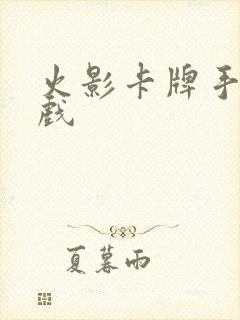 火影卡牌手
戏
夏暮雨